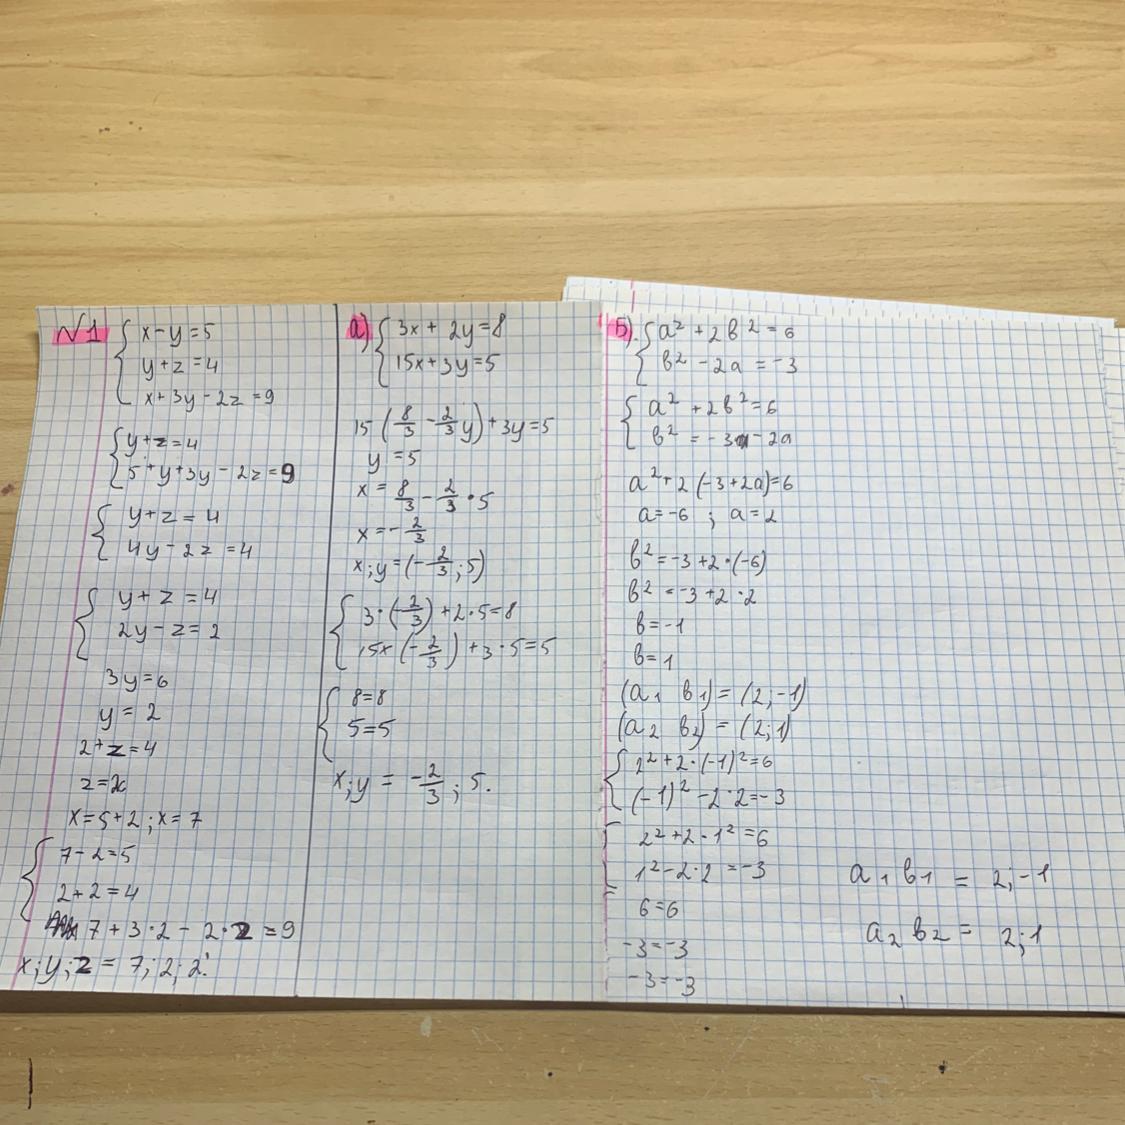 N1 { x-y=5
y+z=4
x+3y-2z=9
{ y+z=4
5+y+3y-2z=9
{ y+z=4
4y-2z=4
{ y+z=4
2y-z=2
3y=6
y=2
2+z=4
z=2
x=5+2; x=7
{ 7-2=5
2+2=4
7+3·2-2·2=9
x;y;z=7;2;2.
а) { 3x+2y=8
15x+3y=5
15(8/3-2/3y)+3y=5
y=5
x=8/3-2/3·5
x=-2/3
x;y=(-2/3;5)
{ 3·(-2/3)+2·5=8
15x(-2/3)+3·5=5
{ 8=8
5=5
x;y=-2/3;5.
Б). { a²+2b²=6
b²-2a=-3
{ a²+2b²=6
b²=-3-2a
a²+2(-3+2a)=6
a=-6; a=2
b²=-3+2·(-6)
b²=-3+2·2
b=-1
b=1
(a₁ b₁)=(2;-1)
(a₂ b₂)=(2;1)
{ 2²+2·(-1)²=6
(-1)²-2·2=-3
{ 2²+2·1²=6
1²-2·2=-3
6=6
-3=-3
-3=-3
a₁ b₁ = 2;-1
a₂ b₂ = 2;1